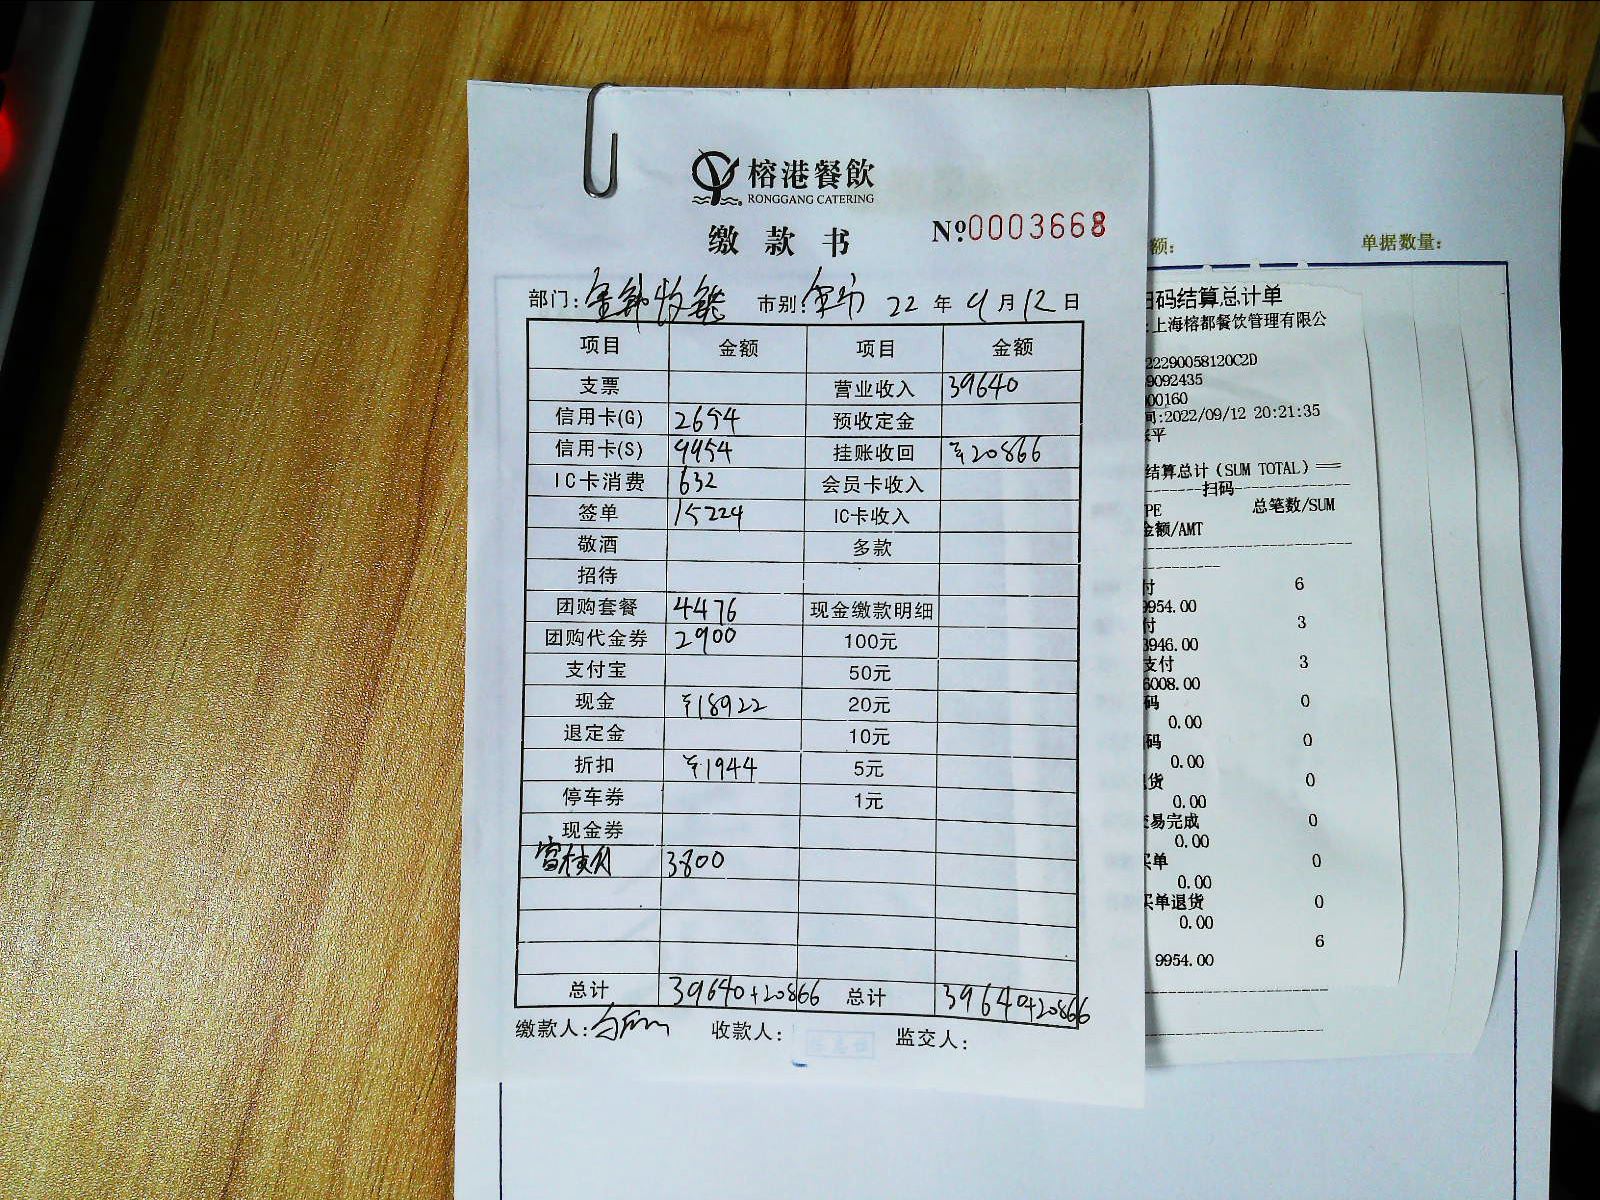 榕港餐飲
RONGGANG CATERING
缴款书
No.0003668
部门: 市别: 22 年 9 月 12 日
项目 金额 项目 金额
支票 营业收入 39640
信用卡(G) 2694 预收定金
信用卡(S) 9954 挂账收回 ¥20866
IC卡消费 632 会员卡收入
签单 15224 IC卡收入
敬酒 多款
招待
团购套餐 4476 现金缴款明细
团购代金券 2900 100元
支付宝 50元
现金 ¥18922 20元
退定金 10元
折扣 ¥1944 5元
停车券 1元
现金券
3800
总计 39640+20866 总计 39640+20866
缴款人: 收款人: 监交人:
额: 单据数量:
扫码结算总计单
:上海榕都餐饮管理有限公
2290058120C2D
9092435
00160
间:2022/09/12 20:21:35
平
结算总计(SUM TOTAL)===
扫码
PE 总笔数/SUM
金额/AMT
付 6
9954.00
付 3
3946.00
支付 3
6008.00
码 0
0.00
码 0
0.00
货 0
0.00
易完成 0
0.00
买单 0
0.00
买单退货 0
0.00
6
9954.00